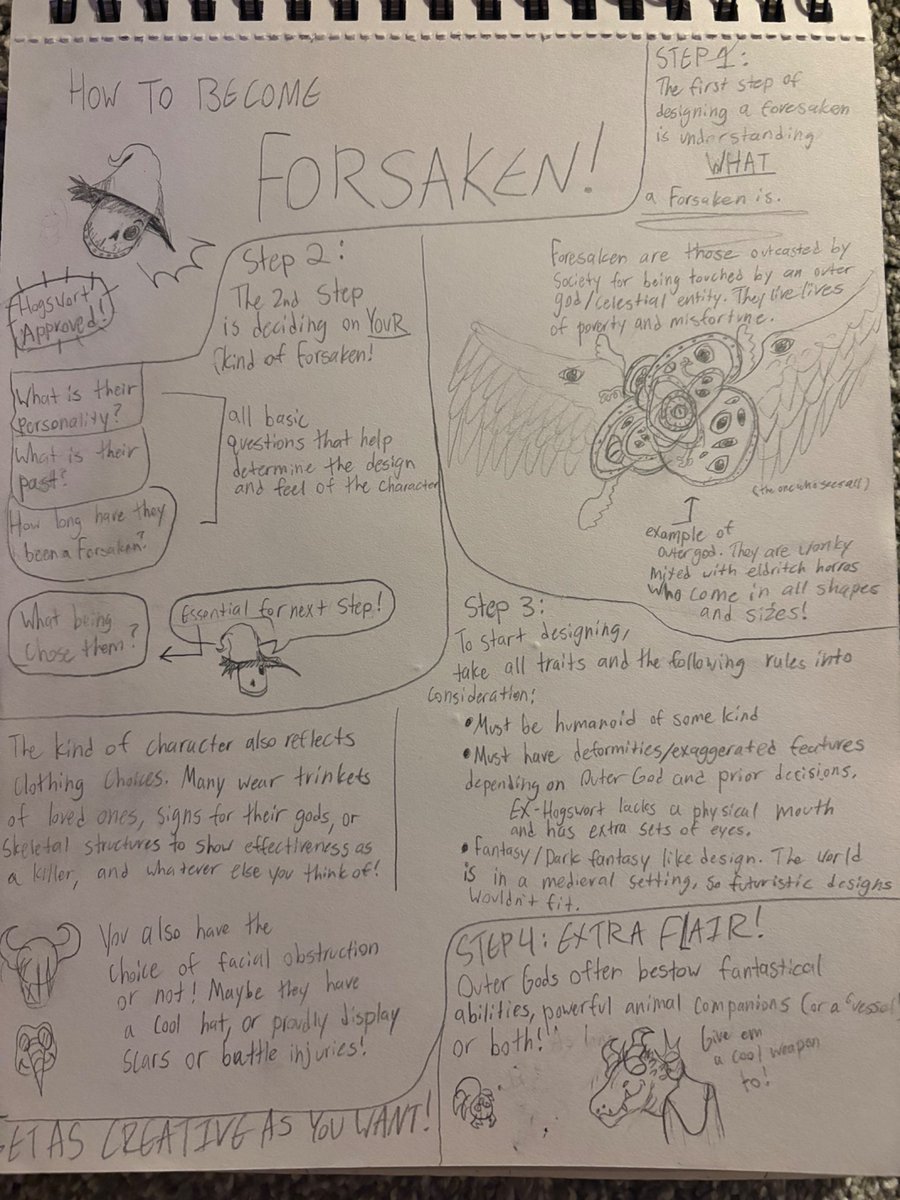 HOW TO BECOME
FORSAKEN!
Hogsvort
Approved!
STEP 1:
The first step of
designing a foresaken
is understanding
WHAT
a Forsaken is.
Foresaken are those outcasted by
Society for being touched by an outer
god/celestial entity. They live lives
of poverty and misfortune.
(the one who sees all)
example of
outer god. They are wonky
mixed with eldritch horros
who come in all shapes
and sizes!
Step 2:
The 2nd Step
is deciding on YOUR
kind of forsaken!
What is their
personality?
What is their
past?
How long have they
been a Forsaken?
all basic
questions that help
determine the design
and feel of the character
What being
chose them?
Essential for next step!
The kind of character also reflects
clothing choices. Many wear trinkets
of loved ones, signs for their gods, or
skeletal structures to show effectiveness as
a killer, and whatever else you think of!
You also have the
choice of facial obstruction
or not! Maybe they have
a cool hat, or proudly display
scars or battle injuries!
Step 3:
To start designing,
take all traits and the following rules into
consideration:
•Must be humanoid of some kind
•Must have deformities/exaggerated features
depending on Outer God and prior decisions.
EX-Hogswort lacks a physical mouth
and has extra sets of eyes.
•Fantasy/Dark fantasy like design. The world
is in a medieval setting, so futuristic designs
wouldn't fit.
STEP 4: EXTRA FLAIR!
Outer Gods often bestow fantastical
abilities, powerful animal companions (or a "vessel"
or both!
Give em
a cool weapon
to!
GET AS CREATIVE AS YOU WANT!